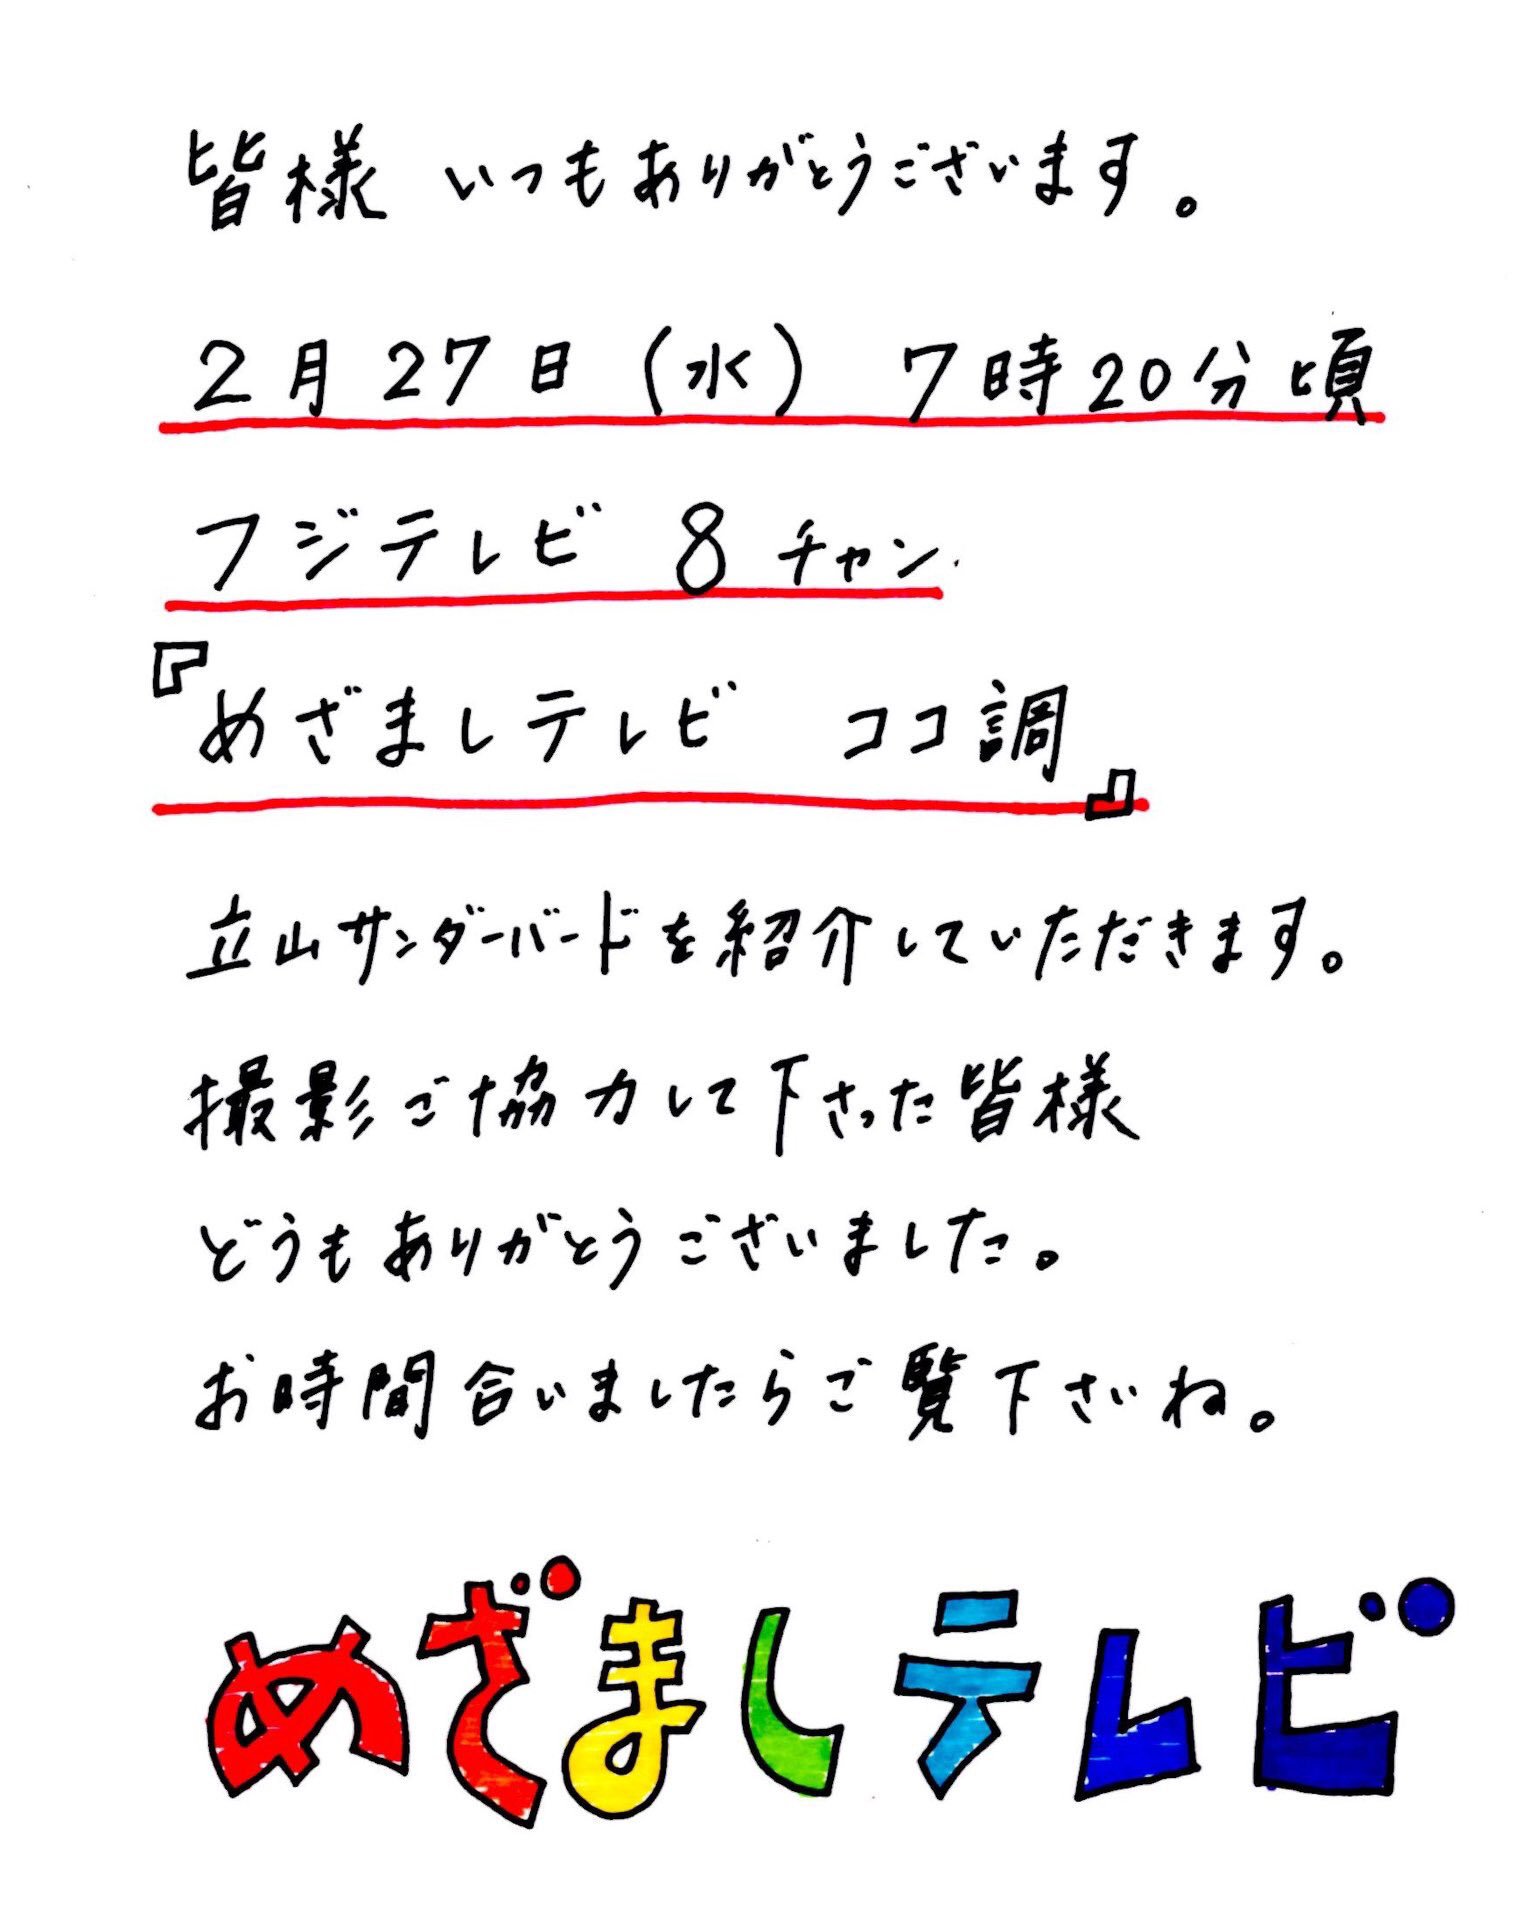 皆様 いつもありがとうございます。
2月27日(水) 7時20分頃
フジテレビ 8チャン
『めざましテレビ ココ調』
立山サンダーバードを紹介していただきます。
撮影ご協力して下さった皆様
どうもありがとうございました。
お時間合いましたらご覧下さいね。
めざましテレビ